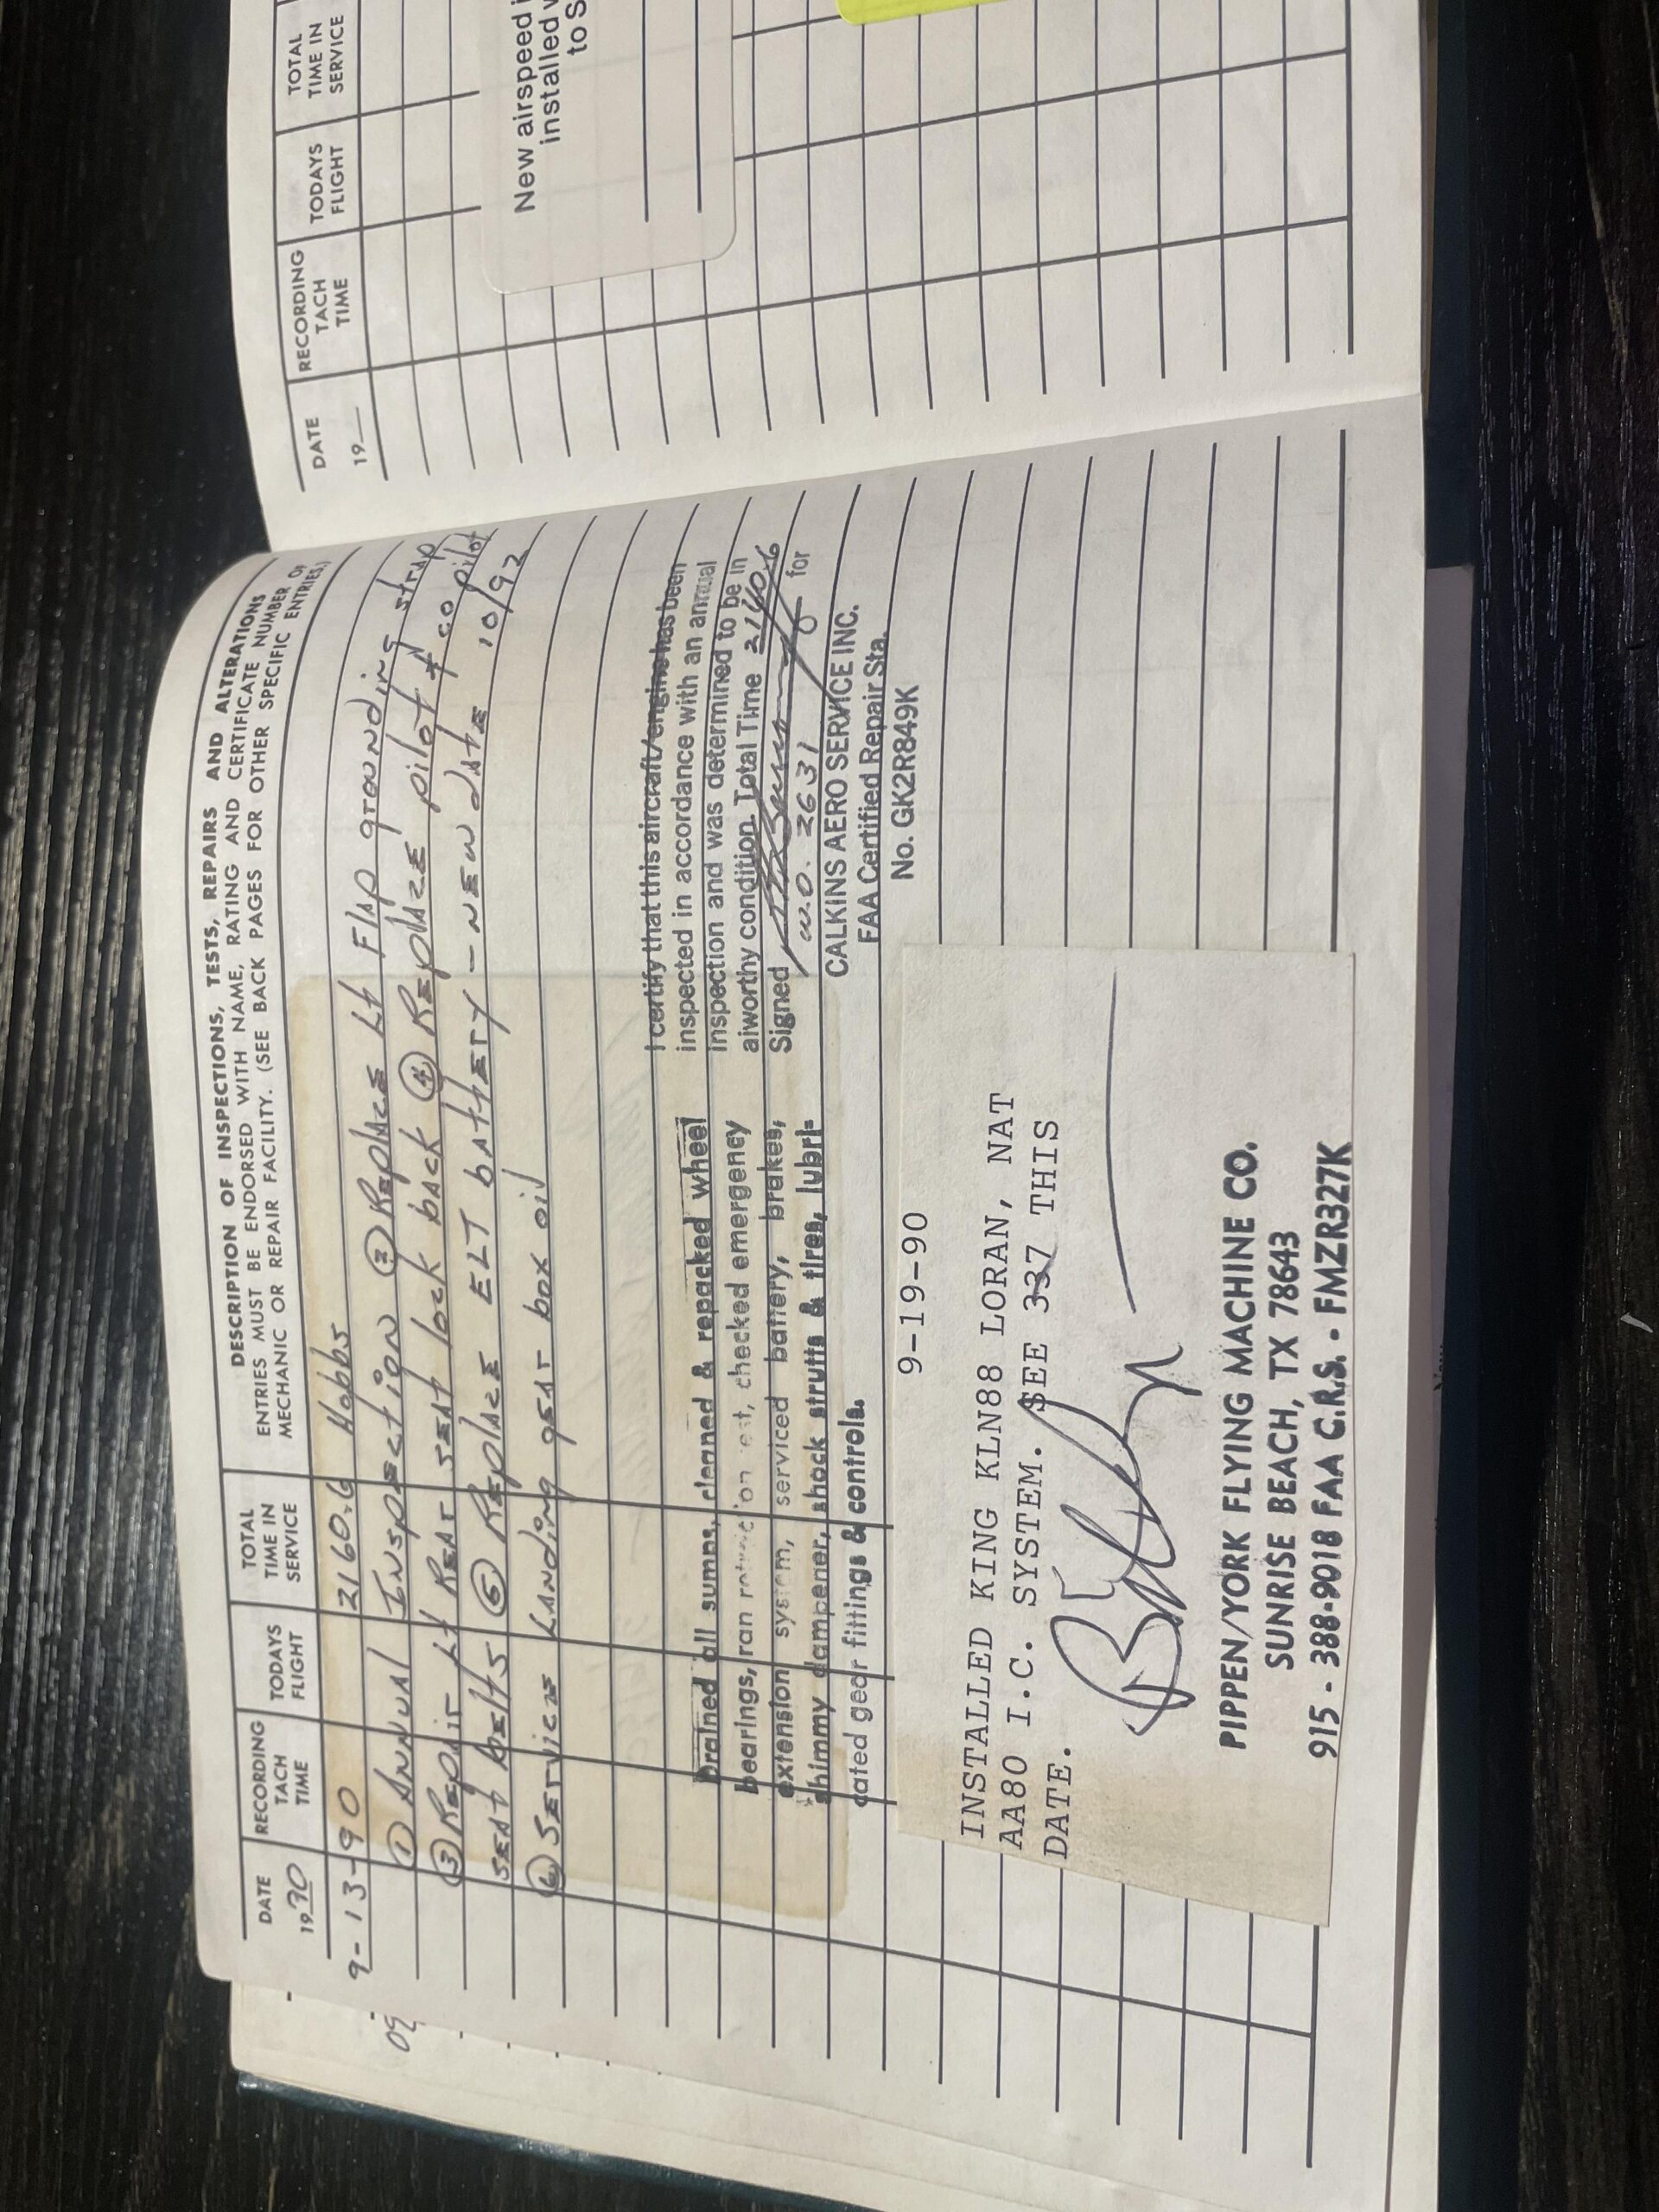 DESCRIPTION OF INSPECTIONS, TESTS, REPAIRS AND ALTERATIONS
ENTRIES MUST BE ENDORSED WITH NAME, RATING AND CERTIFICATE NUMBER OF
MECHANIC OR REPAIR FACILITY. (SEE BACK PAGES FOR OTHER SPECIFIC ENTRIES.)
DATE
1990
RECORDING
TACH
TIME
TODAYS
FLIGHT
TOTAL
TIME IN
SERVICE
9-13-90 2160.6 Hobbs
① Annual Inspection ② Replace Lt Flap grounding strap
③ Repair Lt Rear seat lock back ④ Replace pilot + co pilot
seat belts ⑤ Replace ELT battery - new date 10/92
⑥ Service Landing gear box oil
Drained all sumps, cleaned & repacked wheel
bearings, ran test, checked emergency
extension system, serviced battery, brakes,
shimmy dampener, shock strutts & tires, lubri-
cated gear fittings & controls.
I certify that this aircraft/engine has been
inspected in accordance with an annual
inspection and was determined to be in
aiworthy condition. Total Time 2160.6
Signed for
W.O. 2631
CALKINS AERO SERVICE INC.
FAA Certified Repair Sta.
No. GK2R849K
9-19-90
INSTALLED KING KLN88 LORAN, NAT
AA80 I.C. SYSTEM. SEE 337 THIS
DATE.
PIPPEN/YORK FLYING MACHINE CO.
SUNRISE BEACH, TX 78643
915 - 388-9018 FAA C.R.S. - FMZR327K
DATE
19
RECORDING
TACH
TIME
TODAYS
FLIGHT
TOTAL
TIME IN
SERVICE
New airspeed
installed
to S